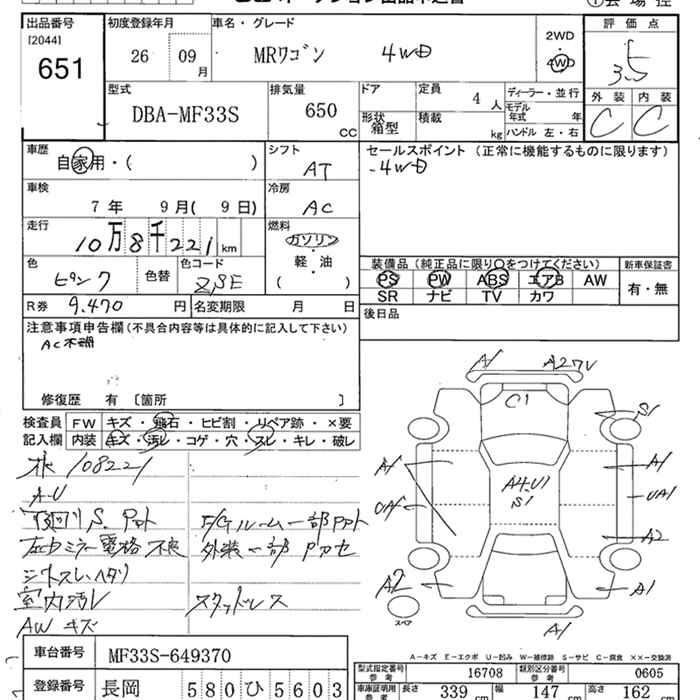 出品番号
[2044]
651
初度登録年月
26 09 月
車名・グレード
MRワゴン 4WD
2WD
4WD
評価点
3.5
外装 内装
C C
型式
DBA-MF33S
排気量
650 CC
ドア
形状
箱型
定員
4 人
積載
kg
ディーラー・並行
モデル年式 年
ハンドル 左・右
車歴
自家用・( )
シフト
AT
車検
7年 9月(9日)
冷房
AC
走行
10万8千221 km
燃料
ガソリン
軽・油
( )
色
ピンク
色替
色コード
ZSE
R券 9,470 円
名変期限 月 日
セールスポイント (正常に機能するものに限ります)
4WD
装備品 (純正品に限り○をつけてください)
PS PW ABS エアB AW
SR ナビ TV カワ
新車保証書
有・無
後日品
注意事項申告欄 (不具合内容等は具体的に記入して下さい)
AC不調
修復歴 有 〔箇所 〕
検査員
記入欄
FW キズ・飛石・ヒビ割・リペア跡・×要
内装 キズ・汚レ・コゲ・穴・スレ・キレ・破レ
108221
A-U
下回りS.
左ドアミラー電格不良
シートスレ・ヘタリ
室内汚レ
AWキズ
ルーム一部
外装一部
スタッドレス
A1 A2 C1 S1
A1 A4.U1 S1 A1
UA1
A2
A2 A1
A1
スペア
A-キズ E-エクボ U-凹み W-補修跡 S-サビ C-腐食 XX-交換済
車台番号
MF33S-649370
登録番号
長岡 580 ひ 5603
型式指定番号 参考 16708
類別区分番号 参考 0605
車庫証明用 参考 長さ 339 cm 幅 147 cm 高さ 162 cm